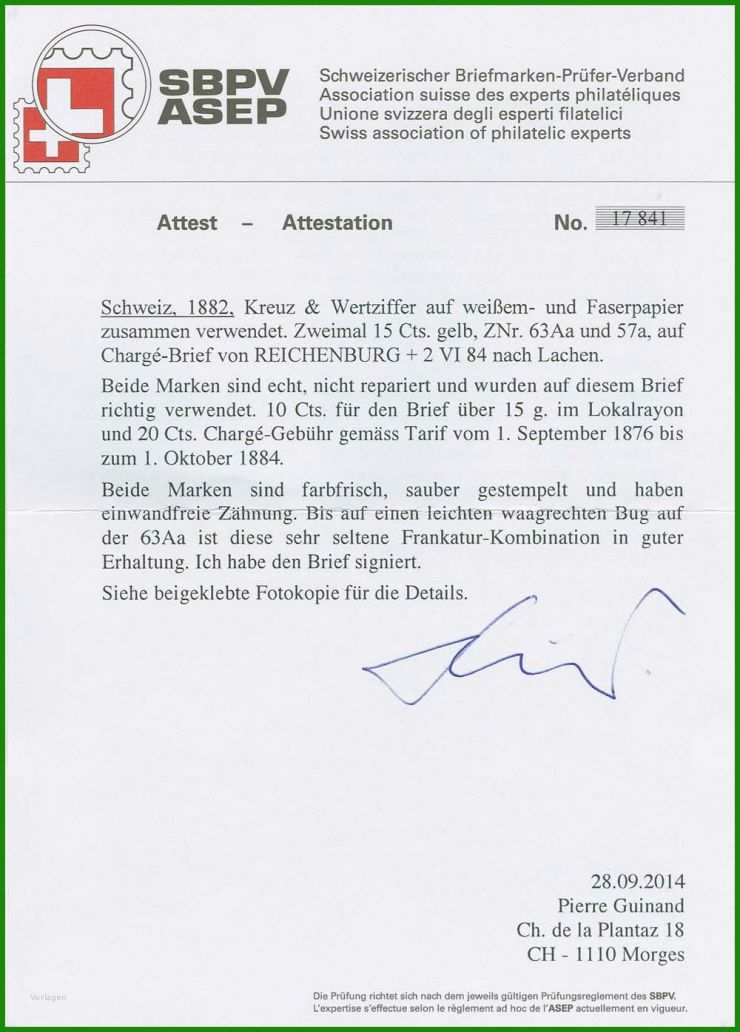 SBPV
ASEP
Schweizerischer Briefmarken-Prüfer-Verband
Association suisse des experts philatéliques
Unione svizzera degli esperti filatelici
Swiss association of philatelic experts
Attest – Attestation No. 17 841
Schweiz, 1882, Kreuz & Wertziffer auf weißem- und Faserpapier
zusammen verwendet. Zweimal 15 Cts. gelb, ZNr. 63Aa und 57a, auf
Chargé-Brief von REICHENBURG + 2 VI 84 nach Lachen.
Beide Marken sind echt, nicht repariert und wurden auf diesem Brief
richtig verwendet. 10 Cts. für den Brief über 15 g. im Lokalrayon
und 20 Cts. Chargé-Gebühr gemäss Tarif vom 1. September 1876 bis
zum 1. Oktober 1884.
Beide Marken sind farbfrisch, sauber gestempelt und haben
einwandfreie Zähnung. Bis auf einen leichten waagrechten Bug auf
der 63Aa ist diese sehr seltene Frankatur-Kombination in guter
Erhaltung. Ich habe den Brief signiert.
Siehe beigeklebte Fotokopie für die Details.
28.09.2014
Pierre Guinand
Ch. de la Plantaz 18
CH - 1110 Morges
Vorlagen
Die Prüfung richtet sich nach dem jeweils gültigen Prüfungsreglement des SBPV.
L'expertise s'effectue selon le règlement ad hoc de l'ASEP actuellement en vigueur.